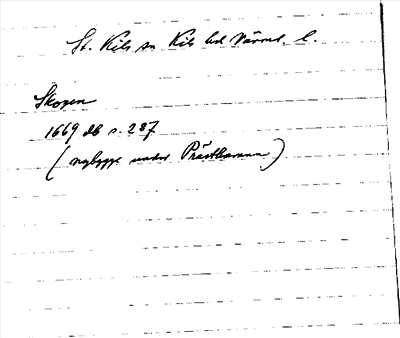 St. Kils sn Kils hd Värml. l.
Skogen
1669 db s. 287
(nybygge under Prästbanan)